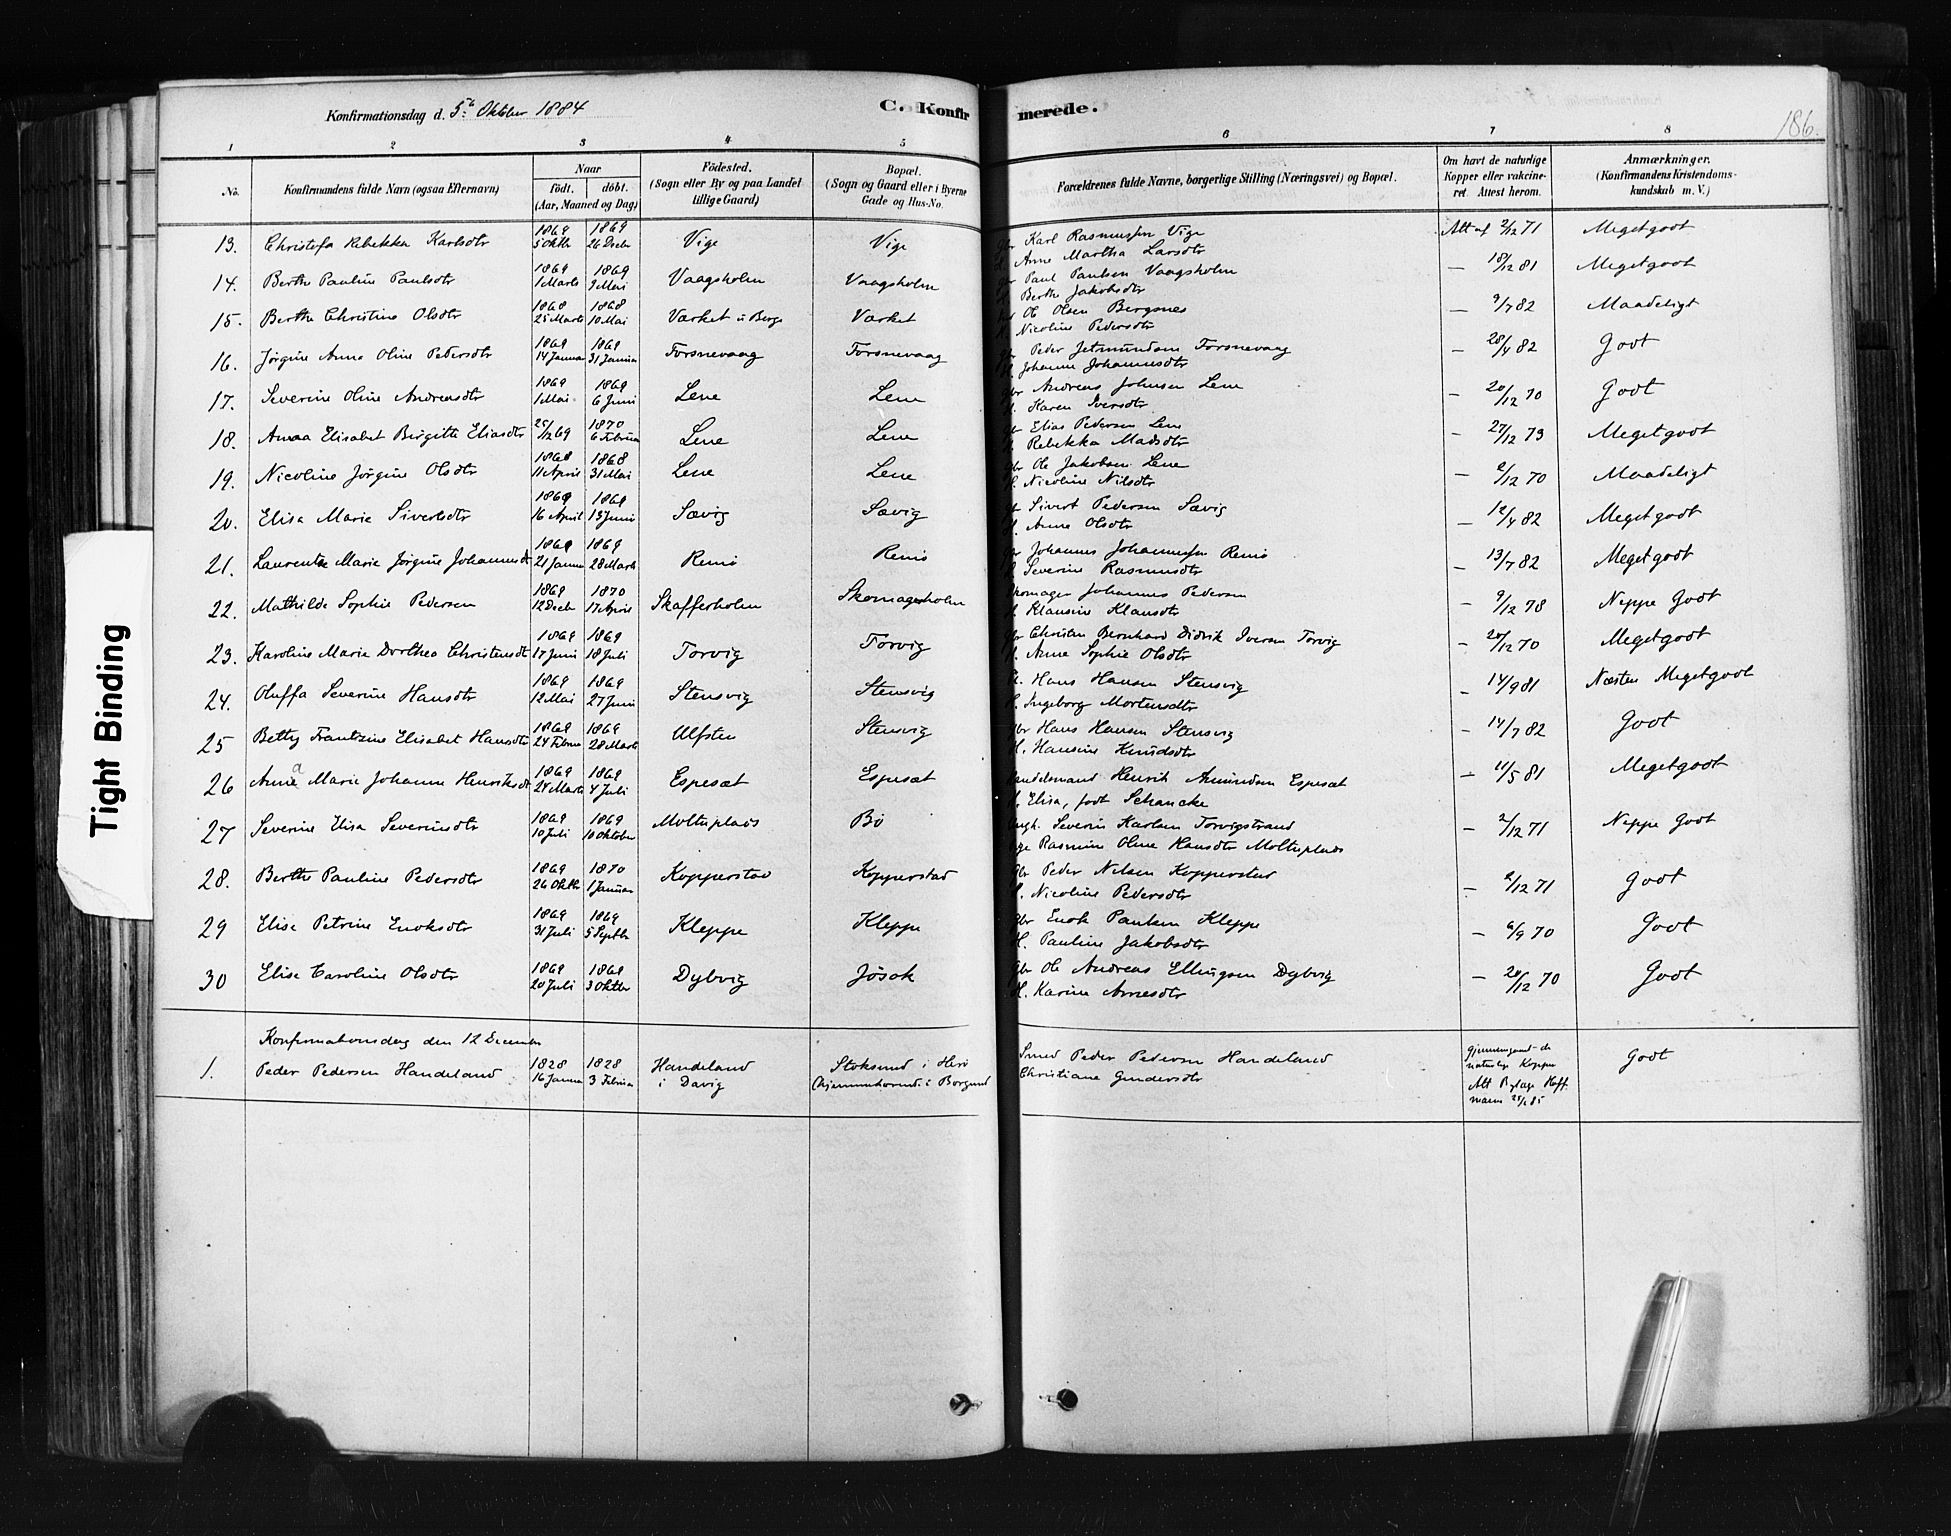 Konfirmationsdag d. 5te Oktober 1884
C. Konfirmerede.
186.
1 2 3 4 5 6 7 8
No.
Konfirmandens fulde Navn (ogsaa Efternavn)
Naar
födt. döbt.
(Aar, Maaned og Dag)
Födested.
(Sogn eller By og paa Landet
tillige Gaard)
Bopæl.
(Sogn og Gaard eller i Byerne
Gade og Hus-No.
Forældrenes fulde Navne, borgerlige Stilling (Næringsvei) og Bopæl.
Om havt de naturlige
Kopper eller vakcine-
ret. Attest herom.
Anmærkninger.
(Konfirmandens Kristendoms-
kundskab m. V.)
13. Christofa Rebekka Karlsdtr 1869 5 Oktbr 1869 26 Decbr Vige Vige Gbr Karl Rasmussen Vige Att af 2/12 71 Megetgodt
H. Anne Martha Larsdtr
14. Berthe Pauline Paulsdtr 1869 1 Marts 1869 9 Mai Vaagsholm Vaagsholm Gbr Paul Paulsen Vaagsholm — 18/12 81 Megetgodt
H. Berthe Jakobsdtr
15. Berthe Christine Olsdtr 1868 25 Marts 1868 10 Mai Varket i Bergs Varket Ole Olsen Bergsnes — 9/7 82 Maadeligt
H. Nicoline Pedersdtr
16. Jørgine Anna Oline Pedersdtr 1869 14 Januar 1869 31 Januar Torsnevaag Torsnevaag Gbr Peder Jetmundsen Torsnevaag — 28/4 82 Godt
H. Johanne Johannesdtr
17. Severine Oline Andreasdtr 1869 1 Mai 1869 6 Juni Lene Lene Gbr Andreas Johnsen Lene — 20/12 70 Godt
H. Karen Iversdtr
18. Anna Elisabet Birgitte Eliasdtr 25/12 69 1870 6 Februar Lene Lene Gbr Elias Pedersen Lene — 27/12 73 Megetgodt
H. Rebekka Madsdtr
19. Nicoline Jørgine Olsdtr 1868 11 April 1868 31 Mai Lene Lene Gbr Ole Jakobsen Lene — 2/12 70 Maadeligt
H. Nicoline Nilsdtr
20. Elisa Marie Sivertsdtr 1869 16 April 1869 13 Juni Sævig Sævig Sivert Pedersen Sævig — 12/4 82 Megetgodt
H. Anne Olsdtr
21. Laurentze Marie Jørgine Johannesdt 1869 21 Januar 1869 28 Marts Remø Remø Gbr Johannes Johannessen Remø — 13/7 82 Megetgodt
H. Severine Rasmusdtr
22. Mathilde Sophie Pedersen 1869 12 Decbr 1870 17 April Skafferholm Skomagerholm Skomager Johannes Pedersen — 9/12 78 Neppe Godt
H. Klausine Klausdtr
23. Karoline Marie Dorthea Christensdt 1869 17 Juni 1869 18 Juli Torvig Torvig Gbr Christen Bernhard Didrik Iversen Torvig — 20/12 70 Megetgodt
H. Anne Sophie Olsdtr
24. Oluffa Severine Hansdtr 1869 12 Mai 1869 27 Juni Stensvig Stensvig Hans Hansen Stensvig — 14/9 81 Næsten Megetgodt
H. Ingeborg Mortensdtr
25 Betty Frantzine Elisabet Hansdtr 1869 24 Februar 1869 28 Marts Ulfsten Stensvig Gbr Hans Hansen Stensvig — 14/7 82 Godt
H. Hansine Knudsdtr
26 Anna Marie Johanne Henriksdt 1869 24 Marts 1869 4 Juli Espesæt Espesæt Handelsmand Henrik Amundsen Espesæt — 11/5 81 Megetgodt
H. Elisa, født Schancke
27 Severine Elisa Severinsdtr 1869 10 Juli 1869 10 Oktober Moltuplads Bø Ungk. Severin Karlsen Torvigstrand — 2/12 71 Neppe Godt
Pige Rasmine Oline Hansdtr Moltuplads
28. Berthe Pauline Pedersdtr 1869 26 Oktbr 1870 1 Januar Kopperstad Kopperstad Gbr Peder Nilsen Kopperstad — 2/12 71 Godt
H. Nicoline Pedersdtr
29 Elise Petrine Enoksdtr 1869 31 Juli 1869 5 Septbr Kleppe Kleppe Gbr Enok Paulsen Kleppe — 6/9 70 Godt
H. Pauline Jakobsdtr
30 Elise Caroline Olsdtr 1869 20 Juli 1869 3 Oktbr Dybvig Jøsok Gbr Ole Andreas Ellingsen Dybvig — 20/12 70 Godt
H. Karine Arnesdtr
Konfirmationsdag den 12 December
1. Peder Pedersen Handeland 1828 16 Januar 1828 3 Februar Handeland i Davig Stoksund i Herø (hjemmehørende i Borgund Smed Peder Pedersen Handeland Godt
Christiane Gundersdtr
gjennemgaaet de
naturlige Kopper
Att Bylæge Hoff-
mann
Tight Binding